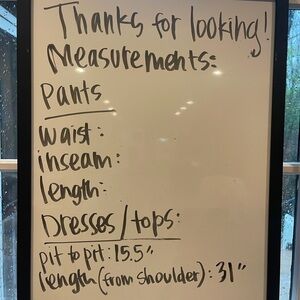 Thanks for looking!
Measurements:
Pants
waist:
inseam:
length:
Dresses/tops:
pit to pit: 15.5"
length (from shoulder): 31"